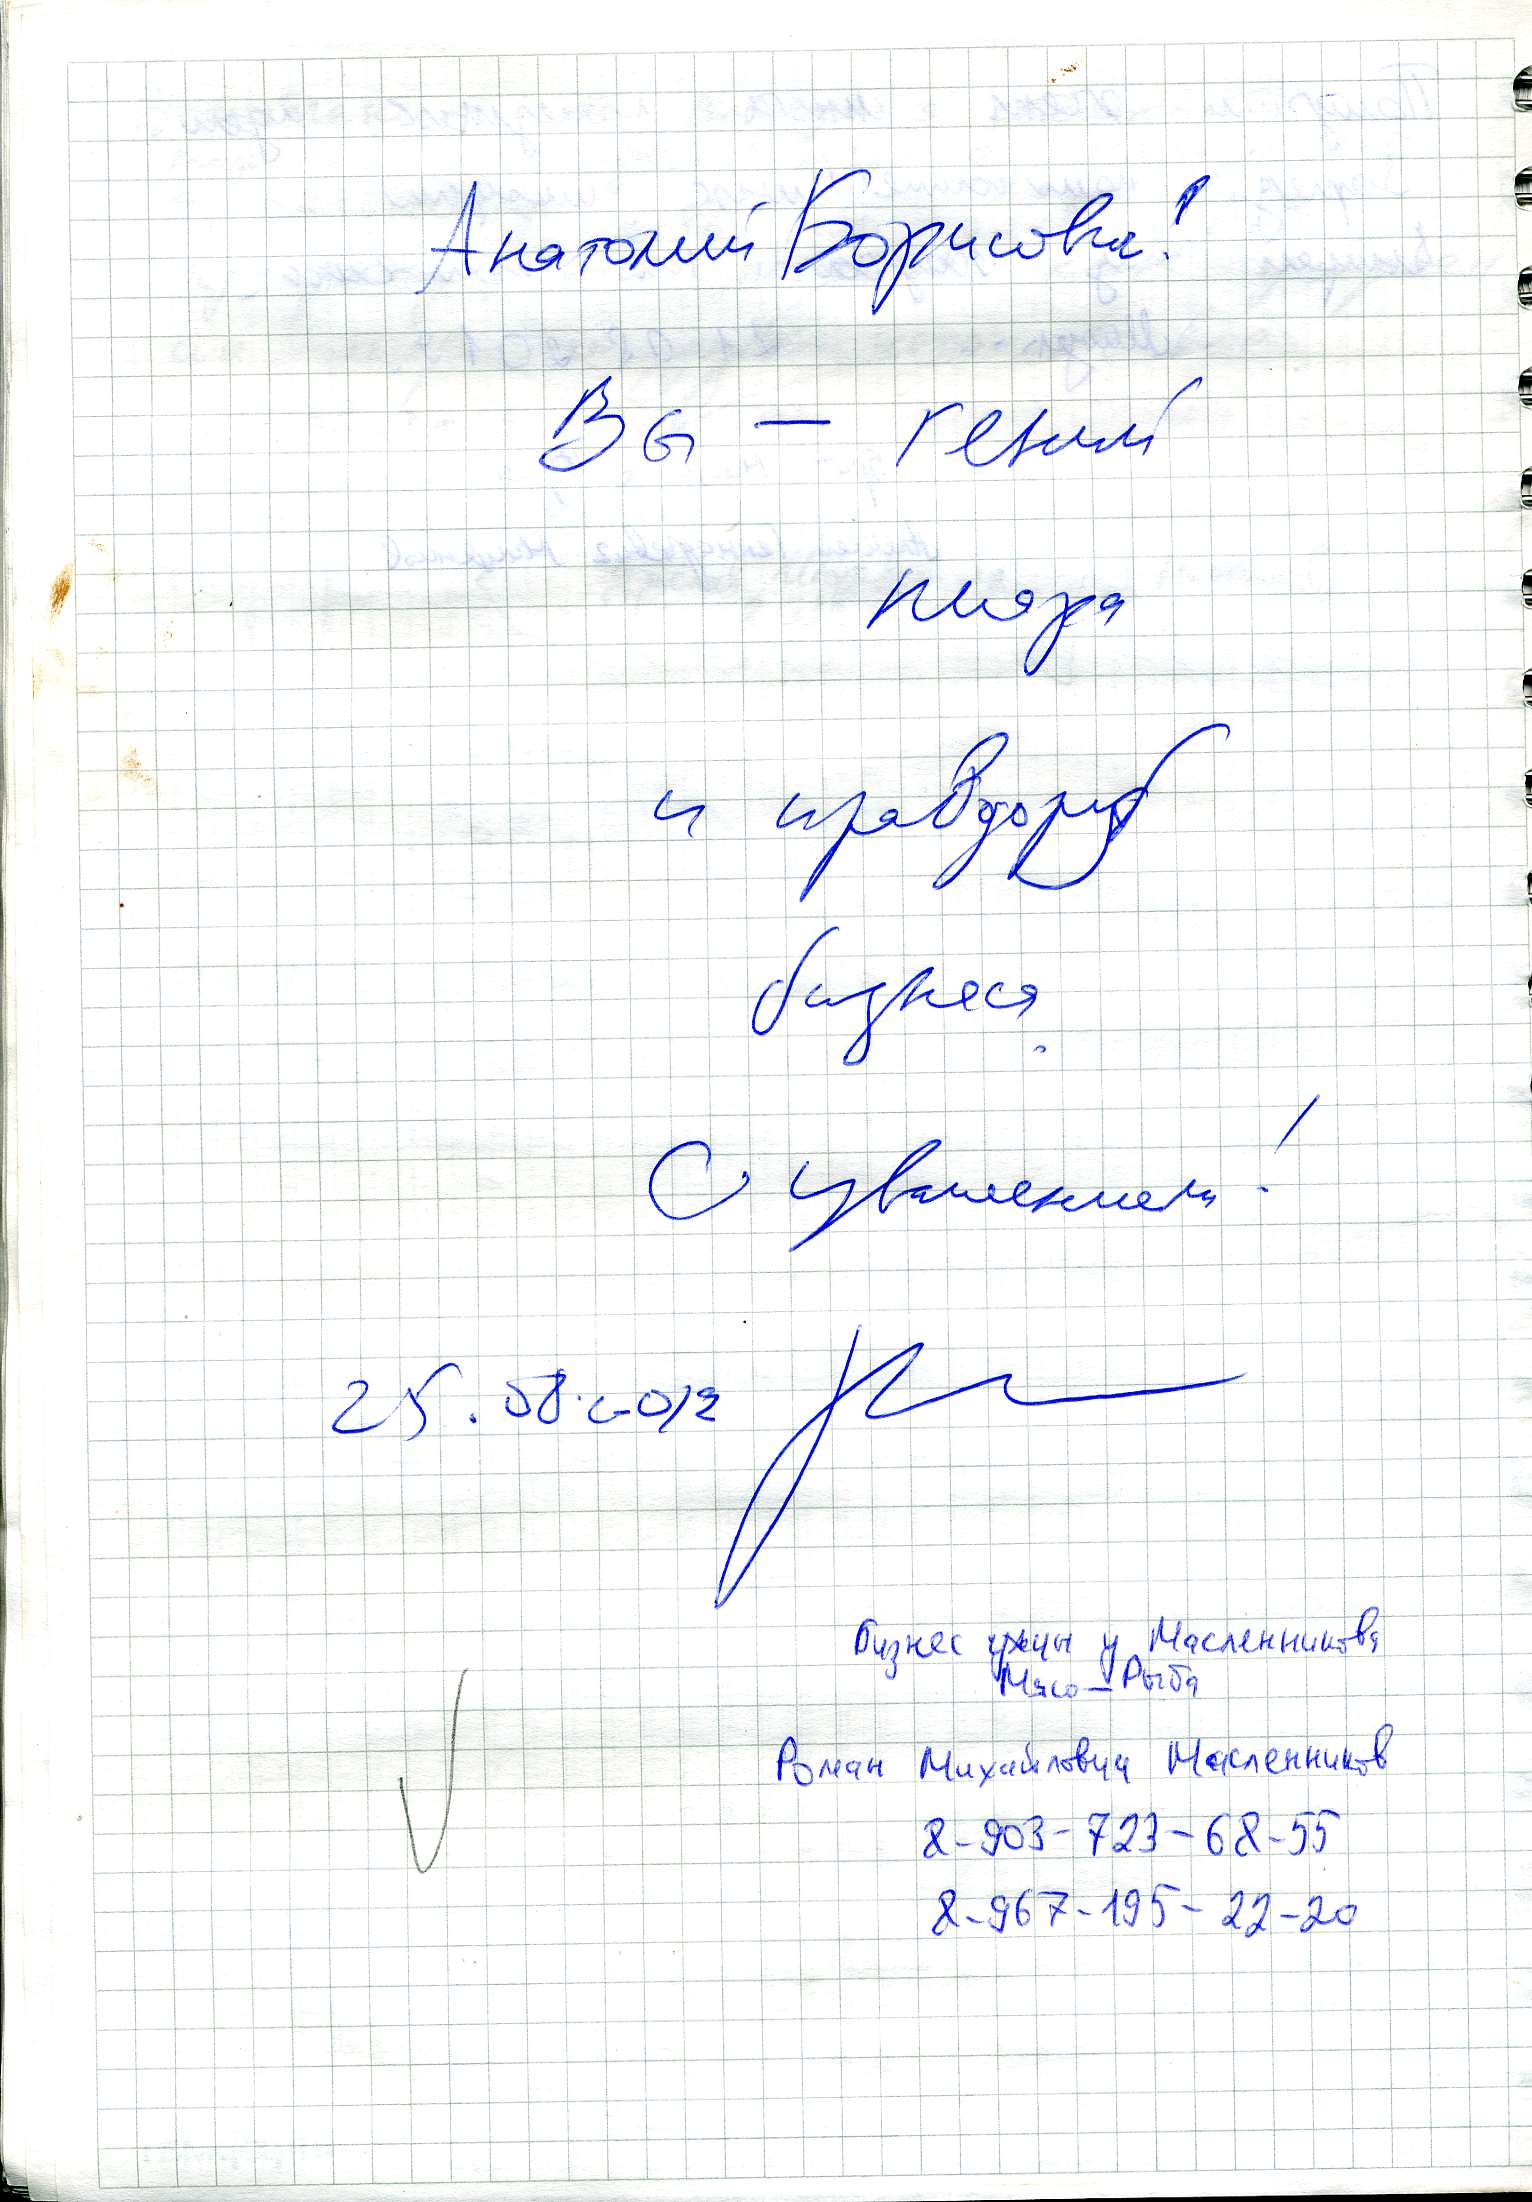 Анатолий Борисович!
Вы — гений
пиара
и правдоруб
бизнеса.
С уважением!
25.08.2012
Бизнес ужины у Масленникова
Мясо-Рыба
Роман Михайлович Масленников
8-903-723-68-55
8-967-195-22-20